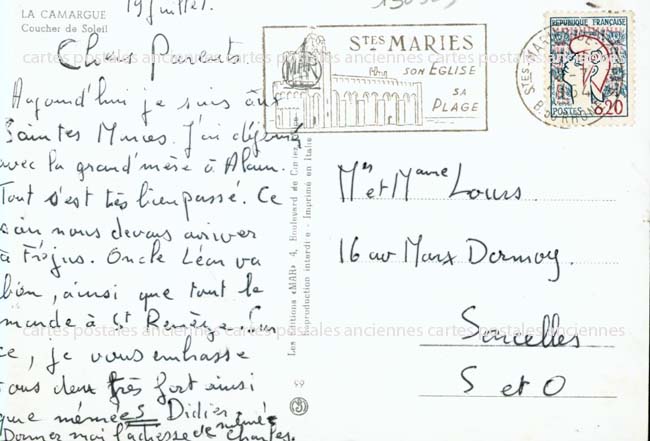 LA CAMARGUE
Coucher de Soleil
19 juillet.
Chers Parents
Aujourd'hui je suis aux
Saintes Maries. J'ai déjeuné
avec la grand'mère à Alain.
Tout s'est très bien passé. Ce
soir nous devons arriver
à Fréjus. Oncle Léon va
bien, ainsi que tout le
monde à St Remèze. Sur
ce, je vous embrasse
tous deux très fort ainsi
que mémées Didier.
Donner moi l'adresse de mémé
Charles.
STES MARIES
SON ÉGLISE
SA
PLAGE
REPUBLIQUE FRANÇAISE
POSTES 0,20
STES-MAR
Les Editions «MAR» 4, Boulevard de
Reproduction interdite - Imprimé en Italie
99
Mr et Mame Lours
16 av Marx Dormoy
Sarcelles
S et O
cartes postales anciennes cartes postales anciennes cartes postales anciennes
cartes postales anciennes cartes postales anciennes cartes postales anciennes